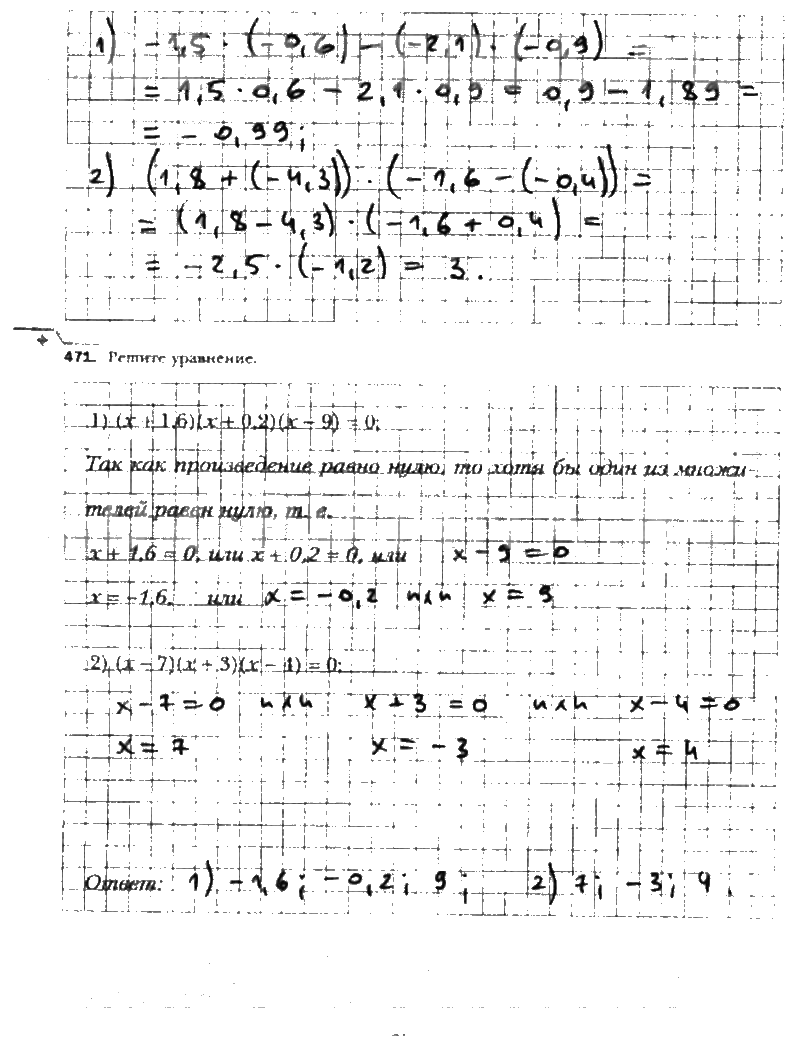 1) -1,5 · (-0,6) - (-2,1) · (-0,9) =
= 1,5 · 0,6 - 2,1 · 0,9 = 0,9 - 1,89 =
= - 0,99;
2) (1,8 + (-4,3)) · (-1,6 - (-0,4)) =
= (1,8 - 4,3) · (-1,6 + 0,4) =
= -2,5 · (-1,2) = 3.
471. Решите уравнение.
1) (x + 1,6)(x + 0,2)(x - 9) = 0;
Так как произведение равно нулю, то хотя бы один из множи-
телей равен нулю, т. е.
x + 1,6 = 0, или x + 0,2 = 0, или x - 9 = 0
x = -1,6, или x = -0,2 или x = 9
2) (x - 7)(x + 3)(x - 4) = 0;
x - 7 = 0 или x + 3 = 0 или x - 4 = 0
x = 7 x = -3 x = 4
Ответ: 1) -1,6; -0,2; 9; 2) 7; -3; 4.